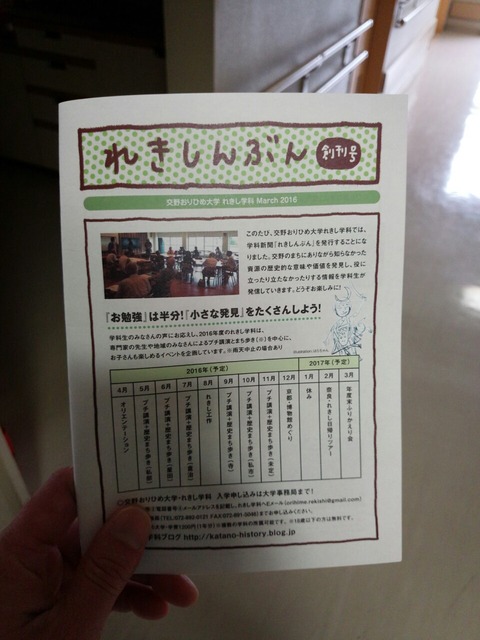 れきしんぶん 創刊号
交野おりひめ大学 れきし学科 March 2016
このたび、交野おりひめ大学れきし学科では、
学科新聞『れきしんぶん』を発行することにな
りました。交野のまちにありながら知らなかった
資源の歴史的な意味や価値を発見し、役に
立ったり立たなかったりする情報を学科生が
発信していきます。どうぞお楽しみに!
『お勉強』は半分!『小さな発見』をたくさんしよう!
学科生のみなさんの声にお応えし、2016年度のれきし学科は、
専門家の先生や地域のみなさんによるプチ講演とまち歩き(※)を中心に、
お子さんも楽しめるイベントを企画しています。※雨天中止の場合あり
2016年(予定) 2017年(予定)
4月 5月 6月 7月 8月 9月 10月 11月 12月 1月 2月 3月
オリエンテーション
プチ講演+歴史まち歩き(私部)
プチ講演+歴史まち歩き
プチ講演+歴史まち歩き
れきし工作
プチ講演+歴史まち歩き(寺)
プチ講演+歴史まち歩き(私市)
プチ講演+歴史まち歩き(未定)
京都・博物館めぐり
休み
奈良・れきし日帰りツアー
年度末ふりかえり会
○交野おりひめ大学・れきし学科 入学申し込みは大学事務局まで!
電話番号とメールアドレスを記載し、れきし学科へメール(orihime.rekishi@gmail.com)
(TEL:072-892-0121 FAX:072-891-5046)までお申し込みください。
学科ブログ http://katano-history.blog.jp